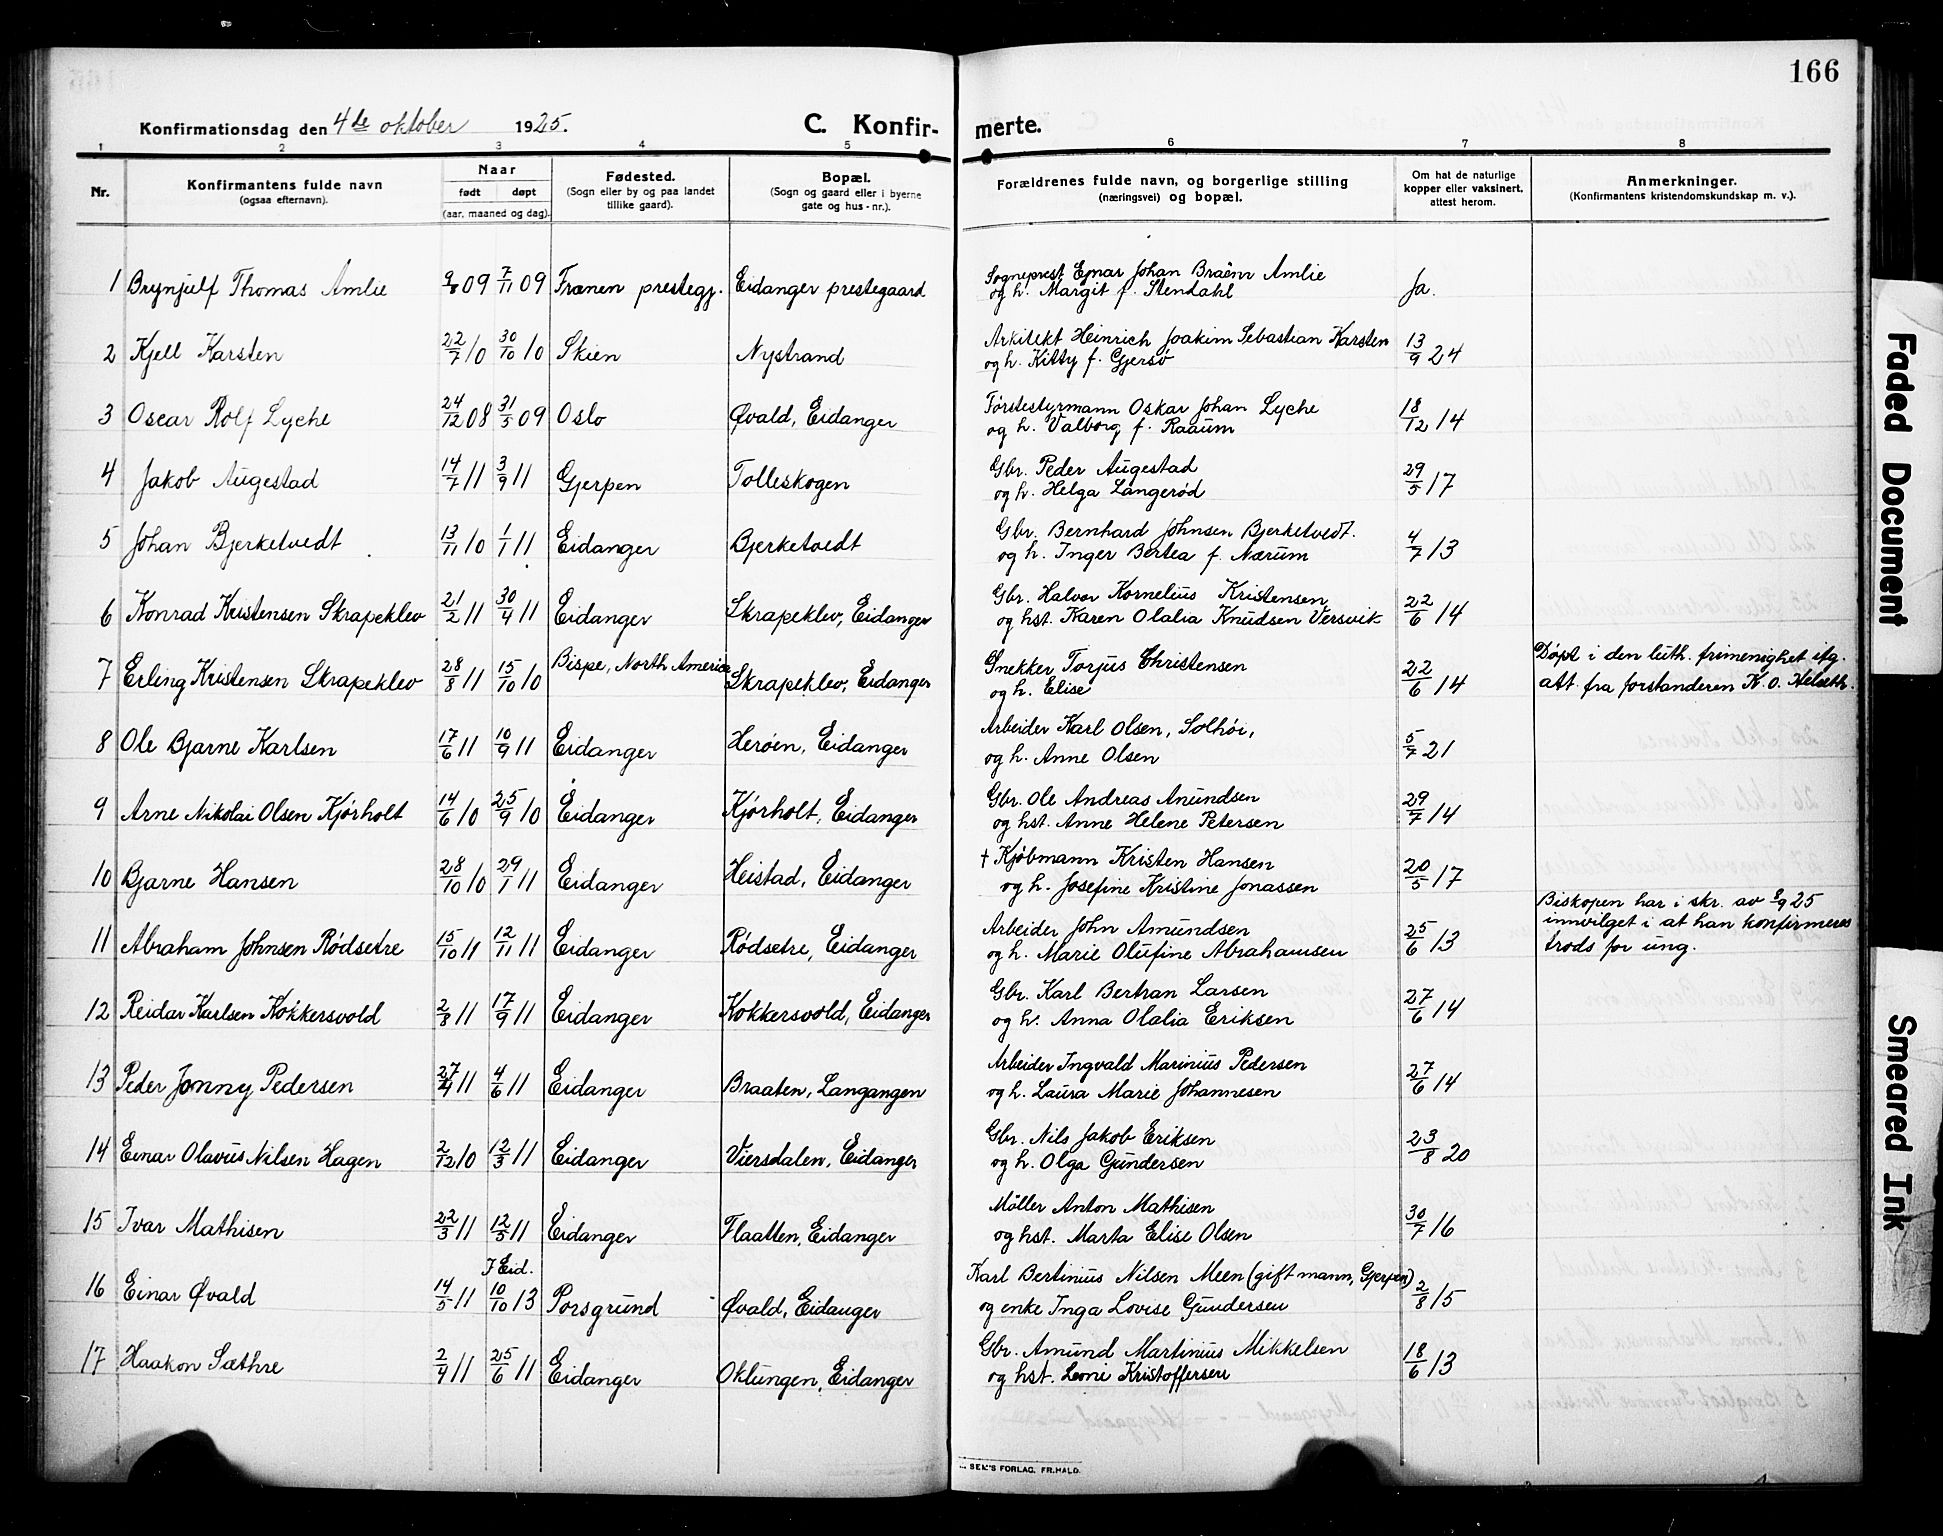 166
Konfirmationsdag den 4de oktober 1925.
C. Konfirmerte.
1 2 3 4 5 6 7 8
Nr.
Konfirmantens fulde navn
(ogsaa efternavn).
Naar
født døpt
(aar, maaned og dag).
Fødested.
(Sogn eller by og paa landet
tillike gaard).
Bopæl.
(Sogn og gaard eller i byerne
gate og hus-nr.).
Forældrenes fulde navn, og borgerlige stilling
(næringsvei) og bopæl.
Om hat de naturlige
kopper eller vaksinert,
attest herom.
Anmerkninger.
(Konfirmantens kristendomskundskap m. v.).
1 Brynjulf Thomas Amlie 9/8 09 7/11 09 Frænen prestegj. Eidanger prestegaard
Sogneprest Ejnar Johan Braënr Amlie
og h. Margit f. Stendahl Ja.
2 Kjell Karsten 22/7 10 30/10 10 Skien Nystrand
Arkitekt Heinrich Joakim Sebastian Karsten
og h. Kitty f. Gjersö 13/9 24
3 Oscar Rolf Lyche 24/12 08 31/5 09 Oslo Øvald, Eidanger
Førstestyrmann Oskar Johan Lyche
og h. Valborg f. Raaum 18/12 14
4 Jakob Augestad 14/7 11 3/9 11 Gjerpen Tolleskogen
Gbr. Peder Augestad
og h. Helga Langerød 29/5 17
5 Johan Bjerketvedt 13/11 10 1/1 11 Eidanger Bjerketvedt
Gbr. Bernhard Johnsen Bjerketvedt.
og h. Inger Bertea f. Nærum 4/7 13
6 Konrad Kristensen Skrapeklev 21/2 11 30/4 11 Eidanger Skrapeklev, Eidanger
Gbr. Halvor Kornelius Kristensen
og hst. Karen Olalia Knudsen Versvik 22/6 14
7 Erling Kristensen Skrapeklev 28/8 11 15/10 10 Bispe, North America Skrapeklev, Eidanger
Snekker Torjus Christensen
og h. Elise 22/6 14
Døpt i den luth. frimenighet iflg.
att. fra forstanderen K. O. Helseth.
8 Ole Bjarne Karlsen 17/6 11 10/9 11 Eidanger Herøen, Eidanger
Arbeider Karl Olsen, Solhöi,
og h. Anne Olsen 5/7 21
9 Arne Nikolai Olsen Kjörholt 14/6 10 25/9 10 Eidanger Kjörholt, Eidanger
Gbr. Ole Andreas Anundsen
og hst. Anne Helene Petersen 29/7 14
10 Bjarne Hansen 28/10 10 29/1 11 Eidanger Heistad, Eidanger
† Kjøbmann Kristen Hansen
og h. Josefine Kristine Jonassen 20/5 17
11 Abraham Johnsen Rödsetre 15/10 11 12/11 11 Eidanger Rödsetre, Eidanger
Arbeider John Amundsen
og h. Marie Olufine Abrahamsen 25/6 13
Biskopen har i skr. av 8/9 25
innvilget i at han konfirmeres
trods for ung.
12 Reidar Karlsen Kokkersvold 2/8 11 17/9 11 Eidanger Kokkersvold, Eidanger
Gbr. Karl Bertran Larsen
og h. Anna Olalia Eriksen 27/6 14
13 Peder Jonny Pedersen 27/4 11 4/6 11 Eidanger Braaten, Langangen
Arbeider Ingvald Marinius Pedersen
og h. Laura Marie Johannesen 27/6 14
14 Einar Olavus Nilsen Hagen 2/12 10 12/3 11 Eidanger Viersdalen, Eidanger
Gbr. Nils Jakob Eriksen
og h. Olga Gundersen 23/8 20
15 Ivar Mathisen 22/3 11 12/5 11 Eidanger Flaatten, Eidanger
Möller Anton Mathisen
og hst. Marta Elise Olsen 30/7 16
16 Einar Øvald 14/5 11 I Eid. 10/10 13 Porsgrund Øvald, Eidanger
Karl Bertinius Nilsen Meen (gift mann, Gjerpen)
og enke Inga Lovise Gundersen 2/8 15
17 Haakon Sæthre 2/4 11 25/6 11 Eidanger Oklungen, Eidanger
Gbr. Amund Martinius Mikkelsen
og hst. Leoni Kristoffersen 18/6 13
SEM'S FORLAG, FR.HALD
Faded Document
Smeared Ink